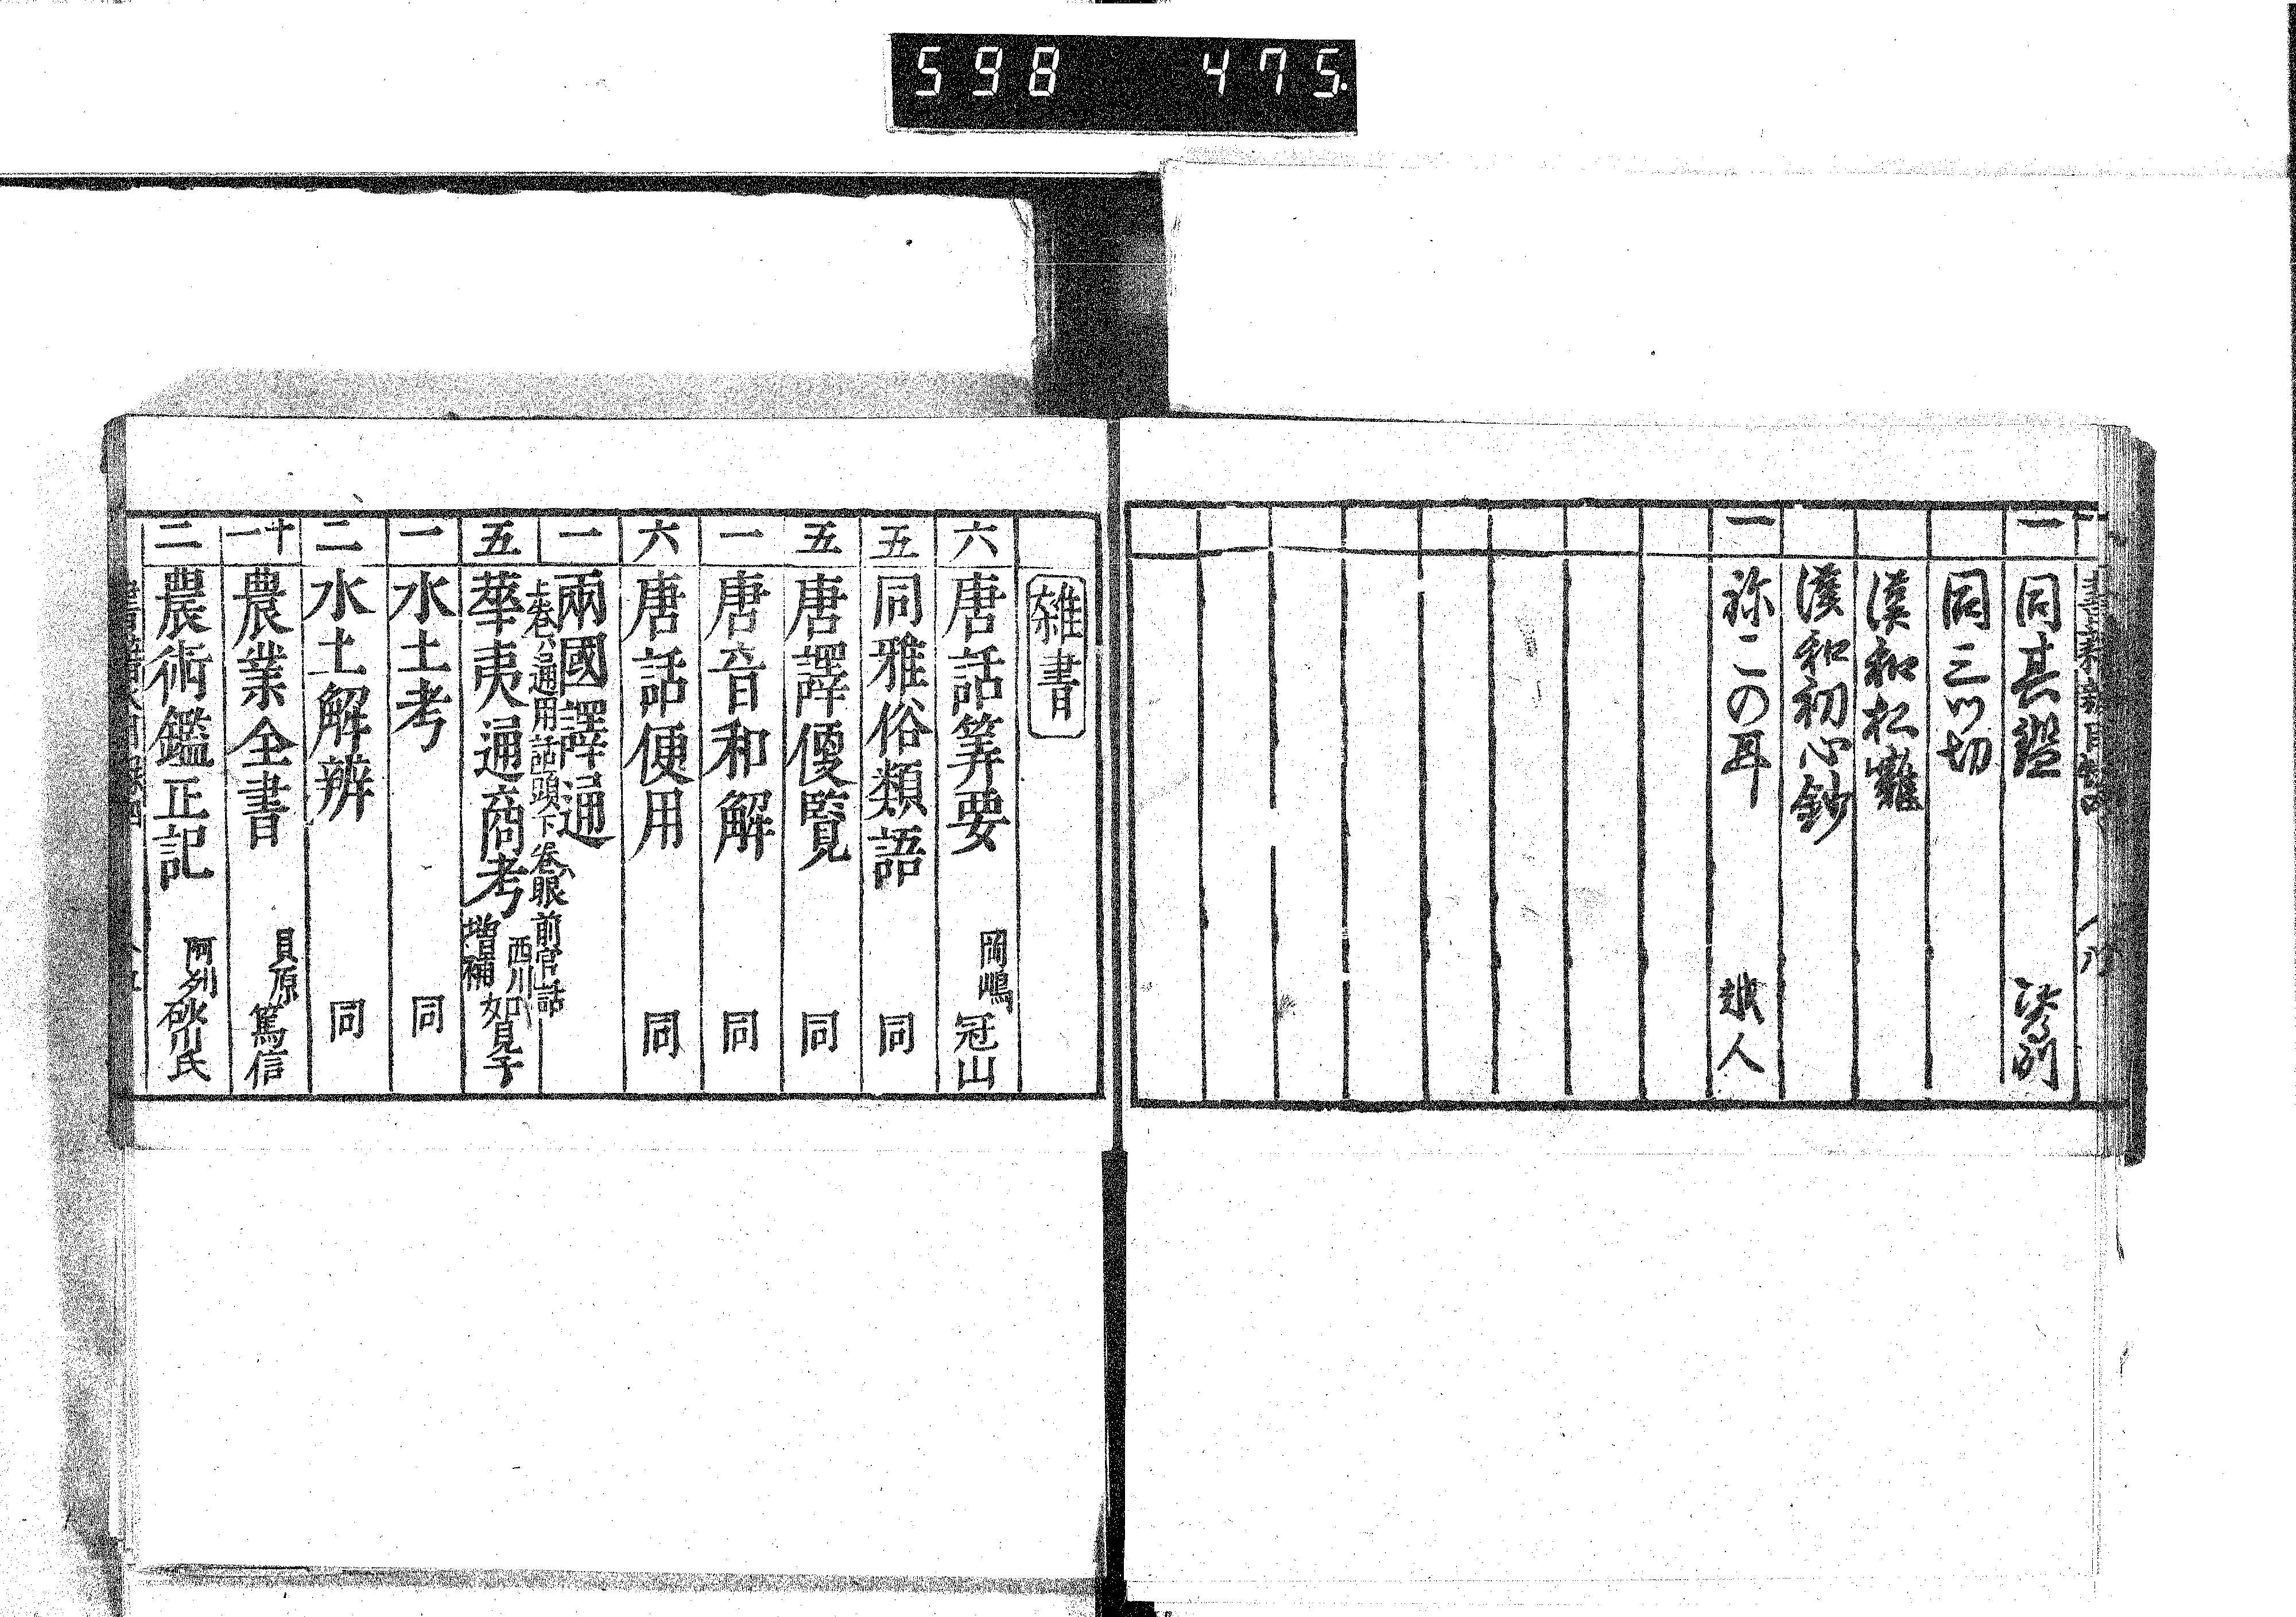 598 475
一 同其鑑
同三ツ切
漢和松囃
漢和初心鈔
一 祢この耳 越人
雑書
六 唐話筭要 岡嶋冠山
五 同雅俗類語 同
五 唐譯便覧 同
一 唐音和解 同
六 唐話便用 同
一 兩國譯通
上巻ハ通用話頭下巻ハ眼前官話
五 華夷通商考 増補 西川如見子
一 水土考 同
二 水土解辨 同
十一 農業全書 貝原篤信
二 農術鑑正記 阿列砂川氏